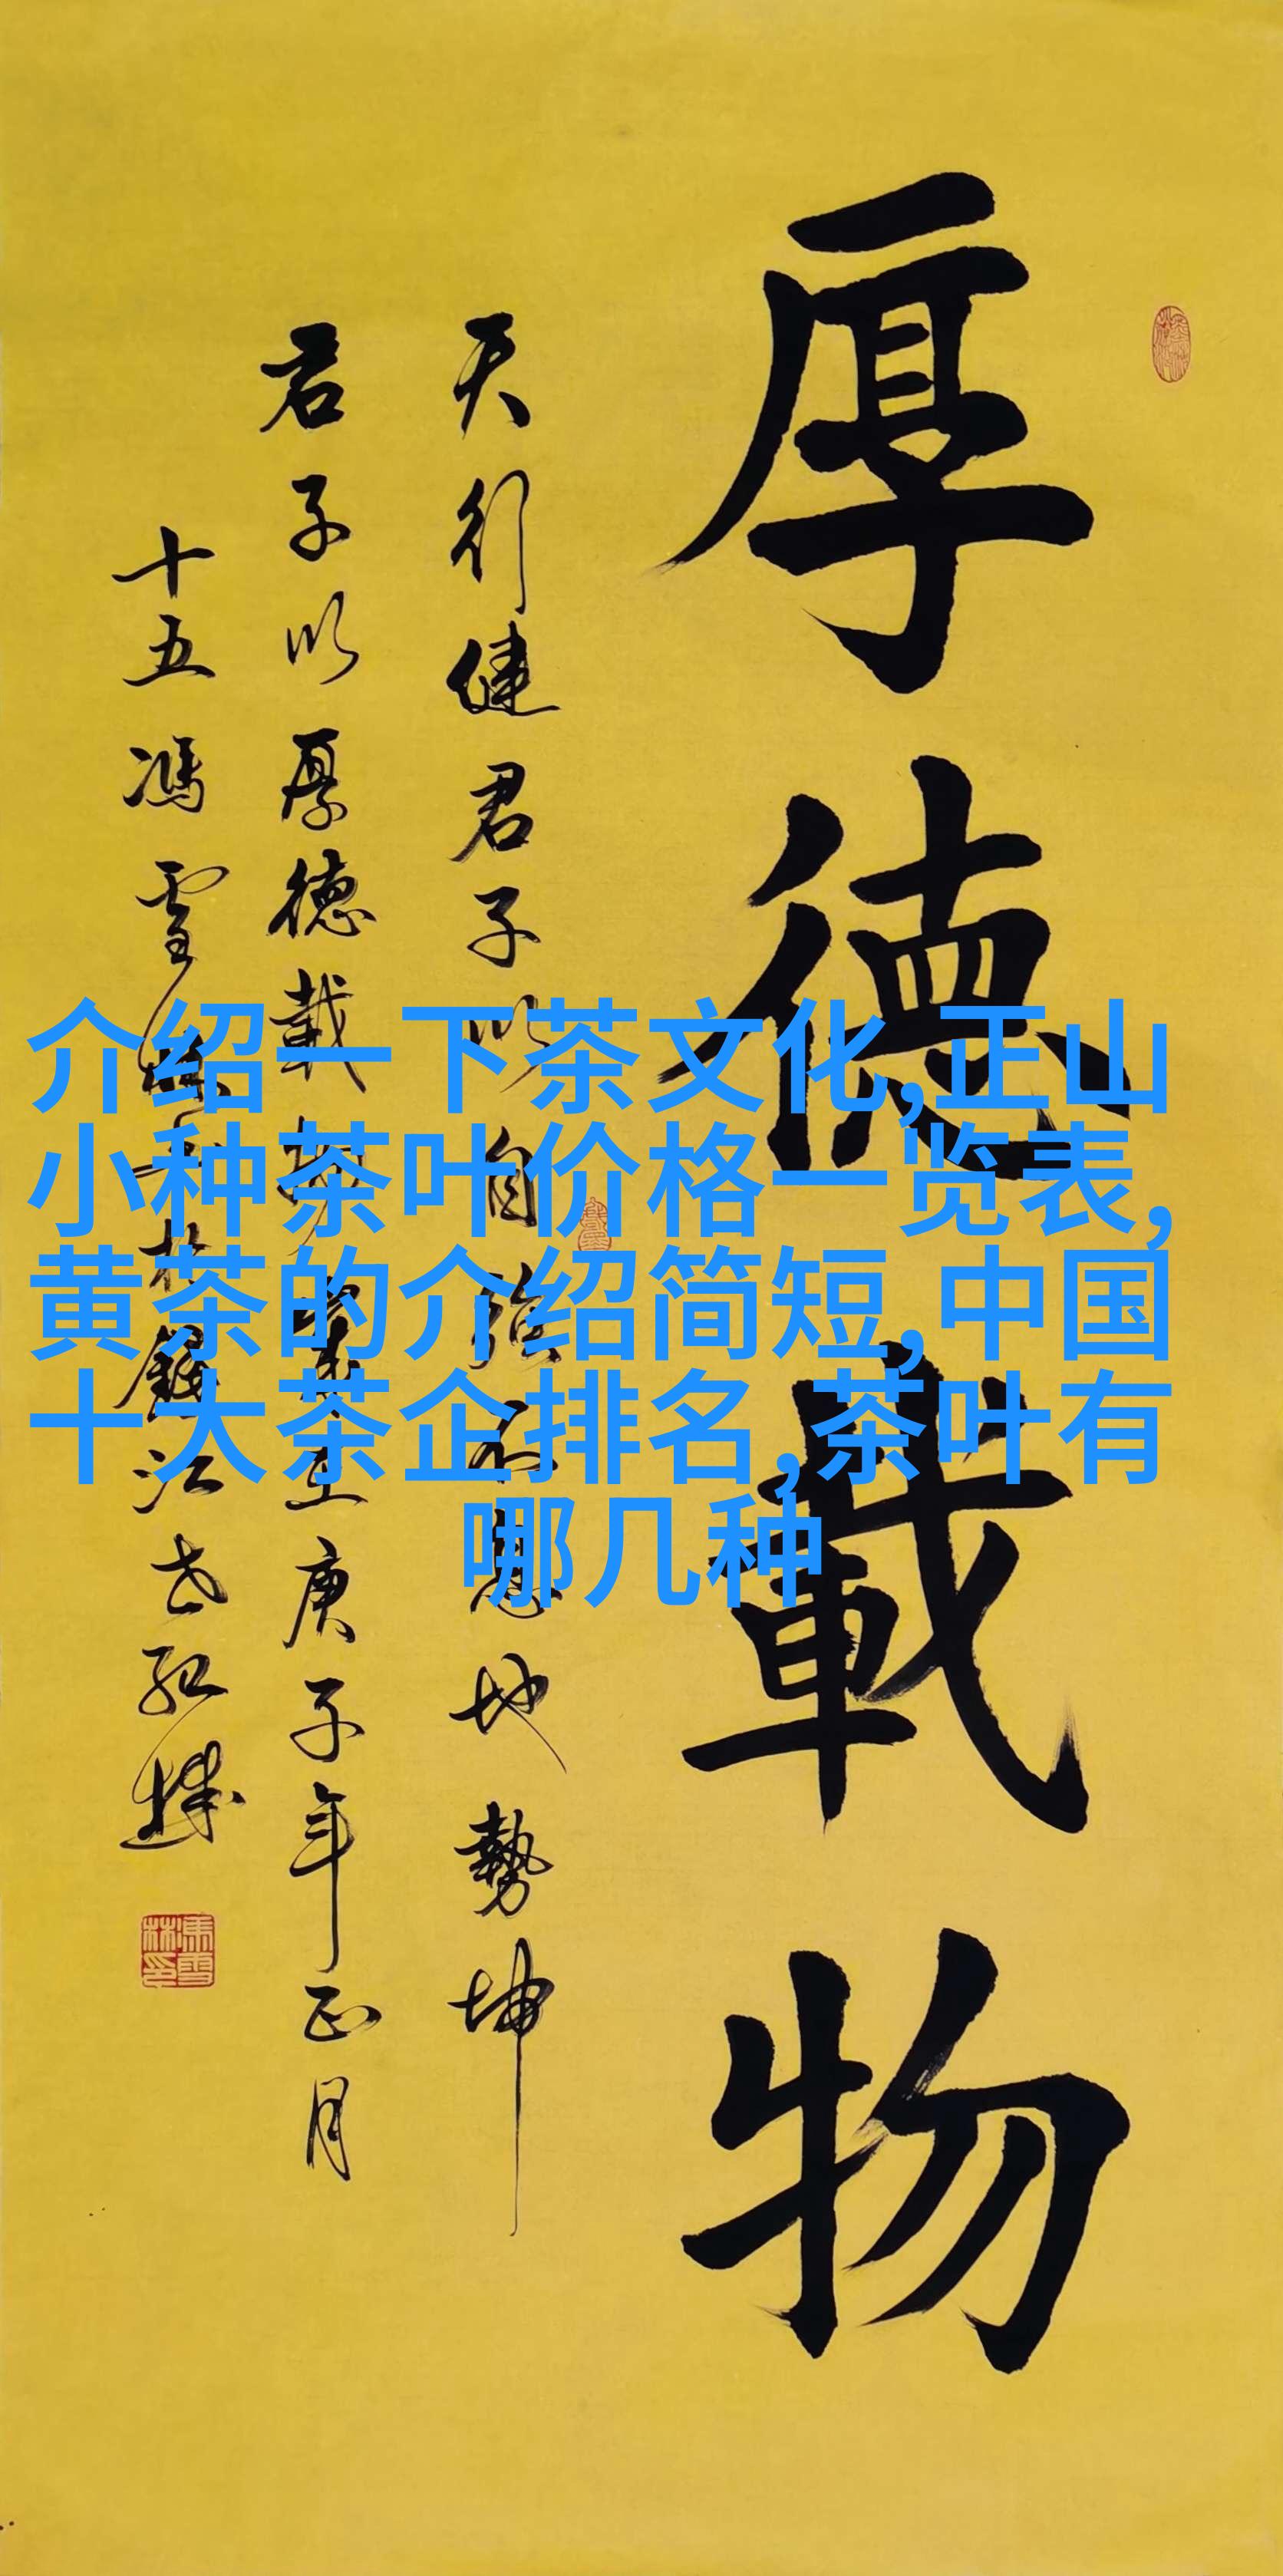 厚德載物
天行健君子以自強不息地勢坤
君子以厚德載物 庚子年正月
十五馮雪林
介绍一下茶文化,正山
小种茶叶价格一览表,
黄茶的介绍简短,中国
十大茶企排名,茶叶有
哪几种
馮雪林印